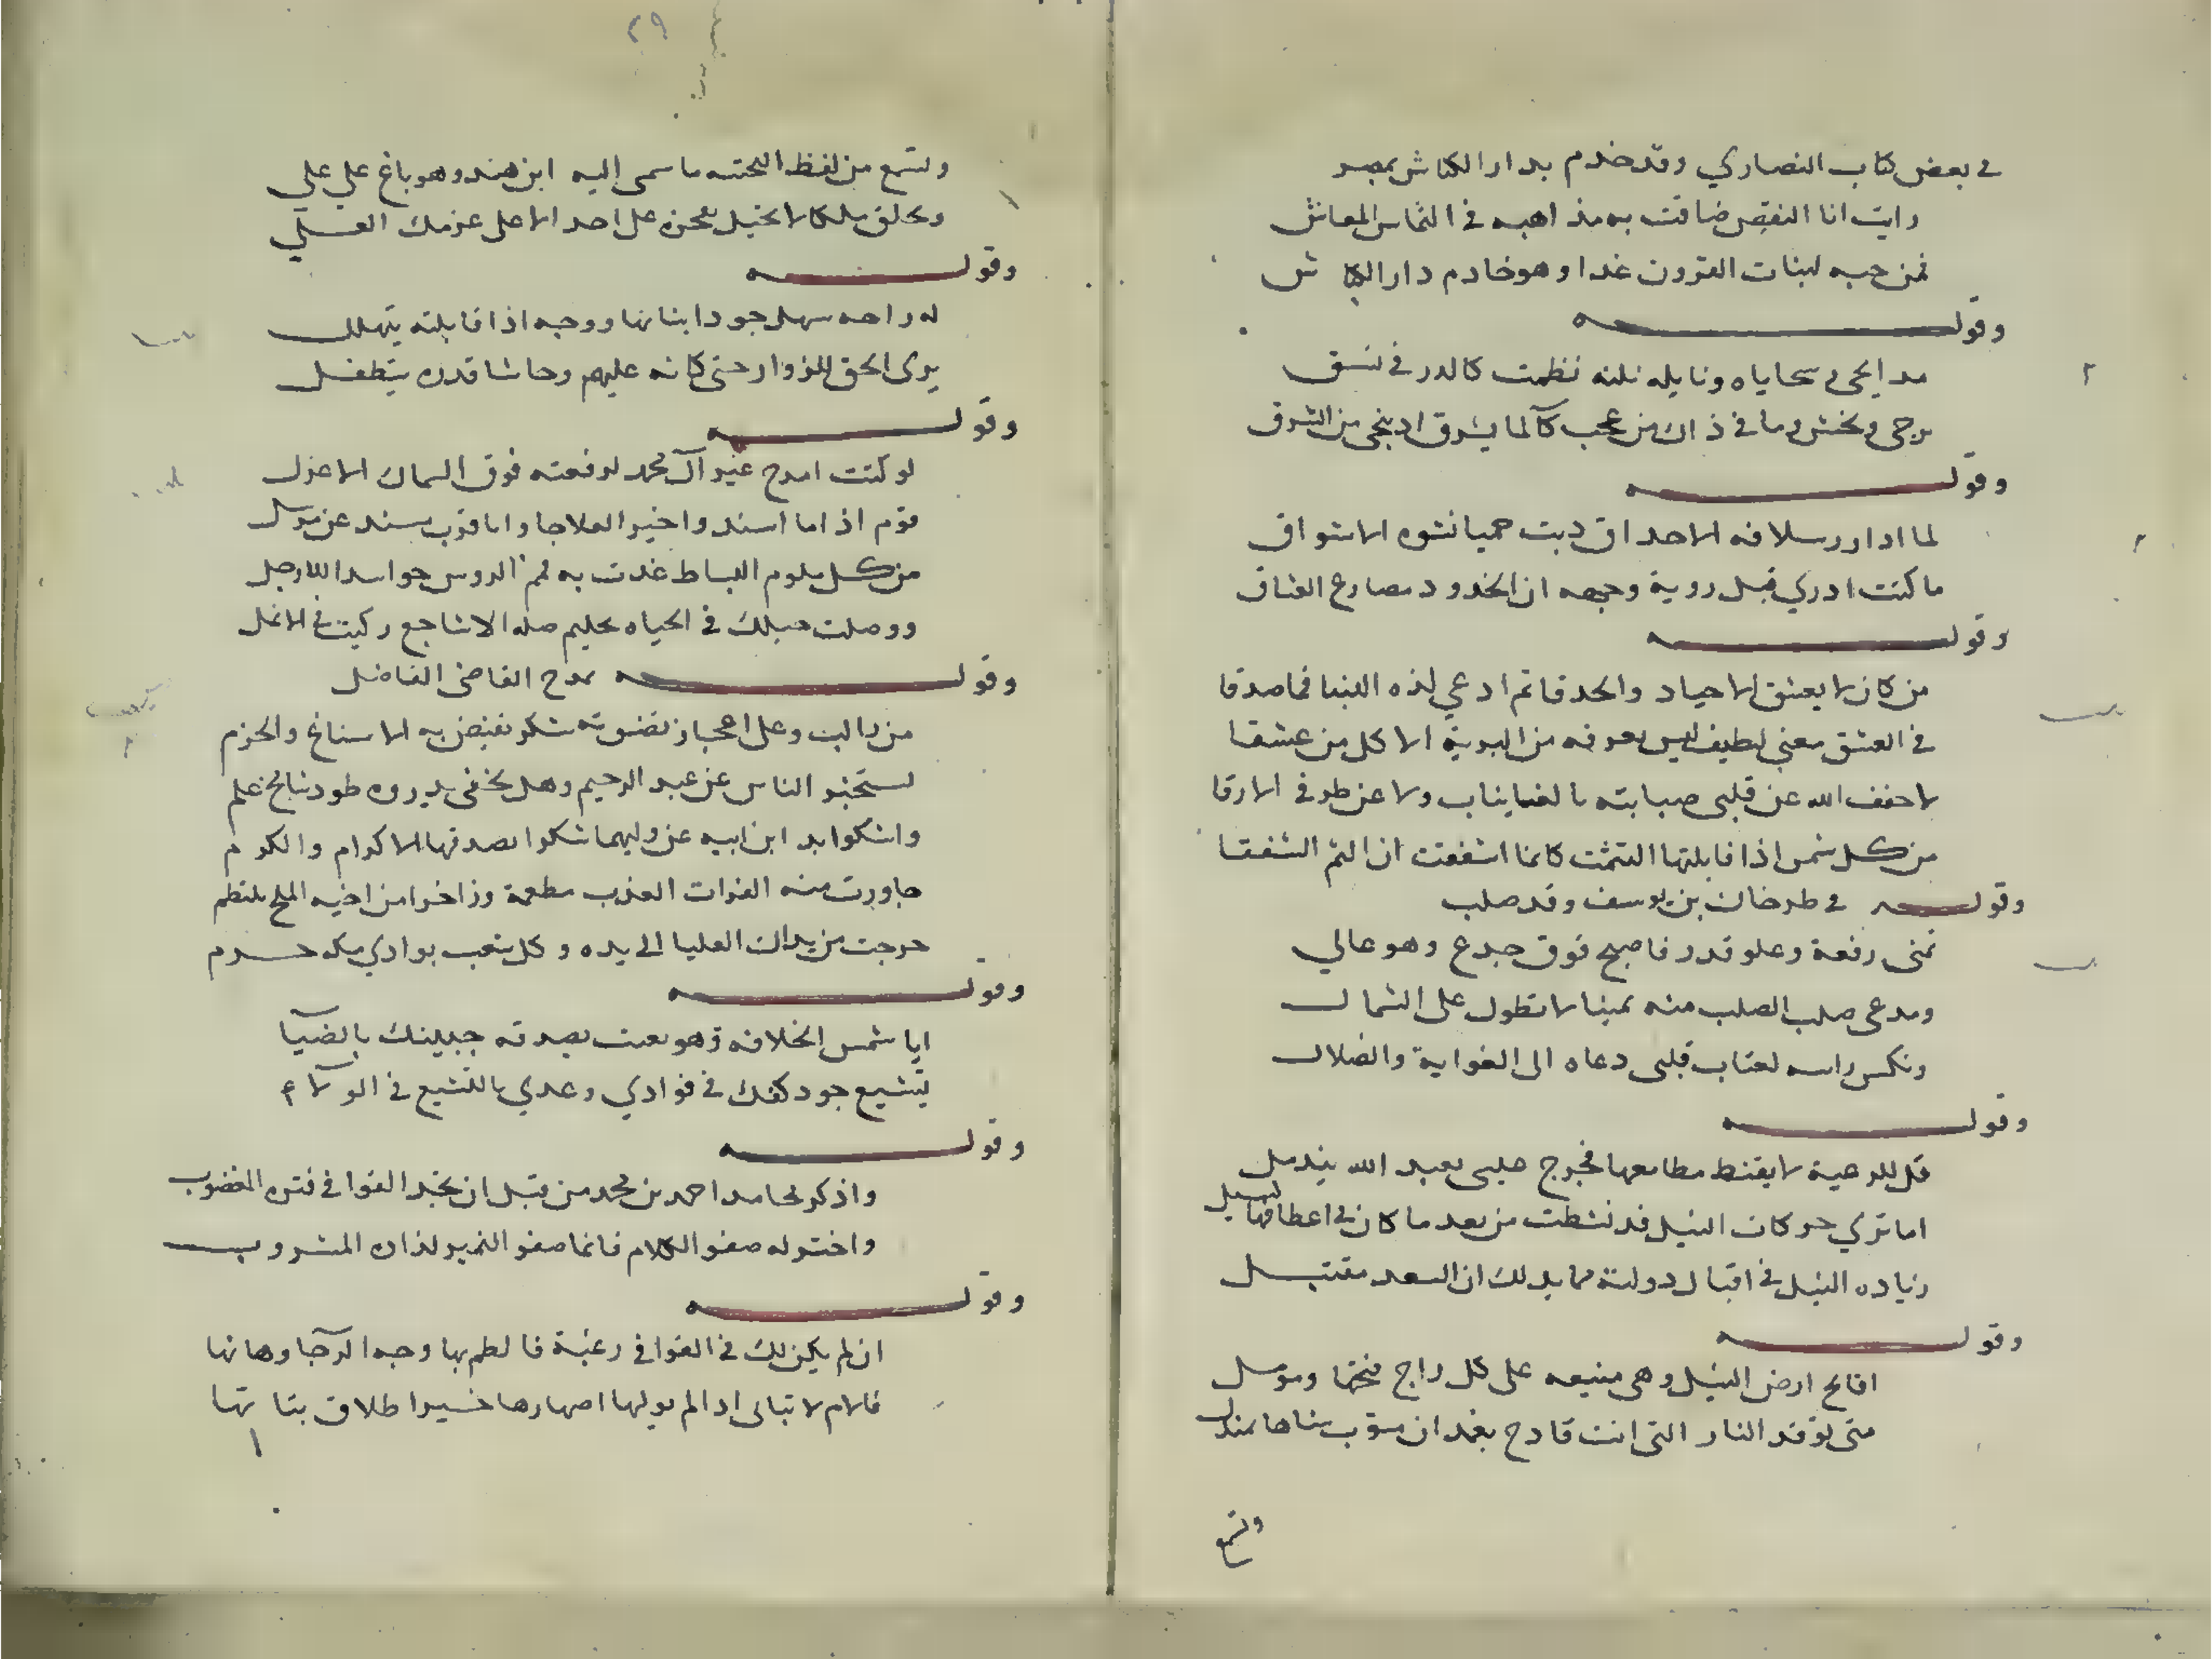 في بعض كتاب النصاري وقد خدم بدار الكباش بمصر
رايت انا النفيس ضاقت به مذاهبه في التماس المعاش
فمن حبه لبنات القرون غدا وهو خادم دار الكباش
وقولـــه
مدايحي في سجاياه ونايله نلنه نظمت كالدر في نسق
يرجى ويخشى وما في ذاك من عجب كالما يشرق اد ينجي من الشرق
وقولـــه
لما ادار سلافه الاحداق دبت حميا نشوه الاشواق
ما كنت ادري قبل روية وجهه ان الخدود مصارع العشاق
وقولـــه
من كان لا يعشق الاجياد والحدقا ثم ادعي لذه الدنيا فما صدقا
في العشق معني لطيف ليس يعرفه من البرية الا كل من عشقا
لا خفف الله عن قلبي صبابته بالغيايناب ولا عن طرفي الارقا
من كل شمس اذا قابلتها التثمت كانما اشفقت ان الثم الشفقا
وقولـــه في طرخان بن يوسف وقد صلب
تمنى رفعة وعلو قدر فاصبح فوق جدع وهو عالي
ومدعى صلب الصلب منه يمينا لا تطول على الشمال
ونكس راسه لعتاب قلبى دعاه الى الغواية والضلال
وقولـــه
قل للرعية لا يقنط مطامعها فجرح صلبى بعبد الله يندمل
اما تري حركات النيل قد نشطت من بعد ما كان في اعطافها كسل
زياده النيل في اقبال دولته مما يدلك ان السعد مقتبـــل
وقولـــه
افاتح ارض النيل وهى منيعه على كل راج فتحها ومومل
متى توقد النار التى انت قادح بغمدان مشوب سناها بمندل
وتسمع
٢٩
وتسمع من لفظ التحيته ما سمى اليه ابن هند وهو باغ علي علي
وتحلق ملكا لا تحيل بفخره على احد الا على عزمك العـــلي
وقولـــه
له راحه سهل جودا بنانها ووجه اذا قابلته يتهلل
يرى الحق للزوار حتى كانه عليهم وحاشا قدره يتطفل
وقولـــه
لو كنت امدح غير آل محمد لرفعته فوق السماك الاعزل
قوم اذا ما اسندوا خبر العلا جا وا باقرب مسند عن مرسل
من كل ملوم البساط غدت به لثم الروس حواسدا للارجل
ووصلت حبلك في الحياه بحليم صله الاشاجع ركبت في الانمل
وقولـــه يمدح القاضي الفاضل
من راليت وعلى اعجاز نضوته شكر تفيض به الاسناغ والحزم
لستخبر الناس عن عبد الرحيم وهل يخفى بديروه طود شامخ علم
واشكوا يد ابن ابيه عن وليهما شكوا يصدقها الاكرام والكرم
جاورت منه الفرات العذب مطعمة وزاخرا من اخيه الملح يلتطم
خرجت من يداك العليا الى يده وكل شعب بوادي مكه حـــرم
وقولـــه
ايا شمس الخلافة وهو نعت يصدقه جبينك بالضيآ
يتشيع جود كفك في فوادي وعدي بالتشيع في الولاء
وقولـــه
واذكر محامد احمد بن محمد من قبل ان تجد القوافي فتره المغضوب
واختر له صفو الكلام فانما صفو النمير لذاذه المشروب
وقولـــه
ان لم يكن لك في القوافي رغبة فالطم بها وجه الرجا وهاتها
فالام لا تبالى اد الم يولها اصهارها خيرا طلاق بناتها